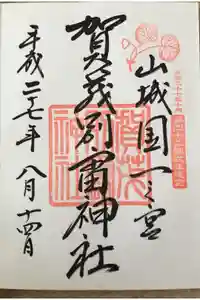 山城国一之宮
賀茂別雷神社
平成二七年八月十四日